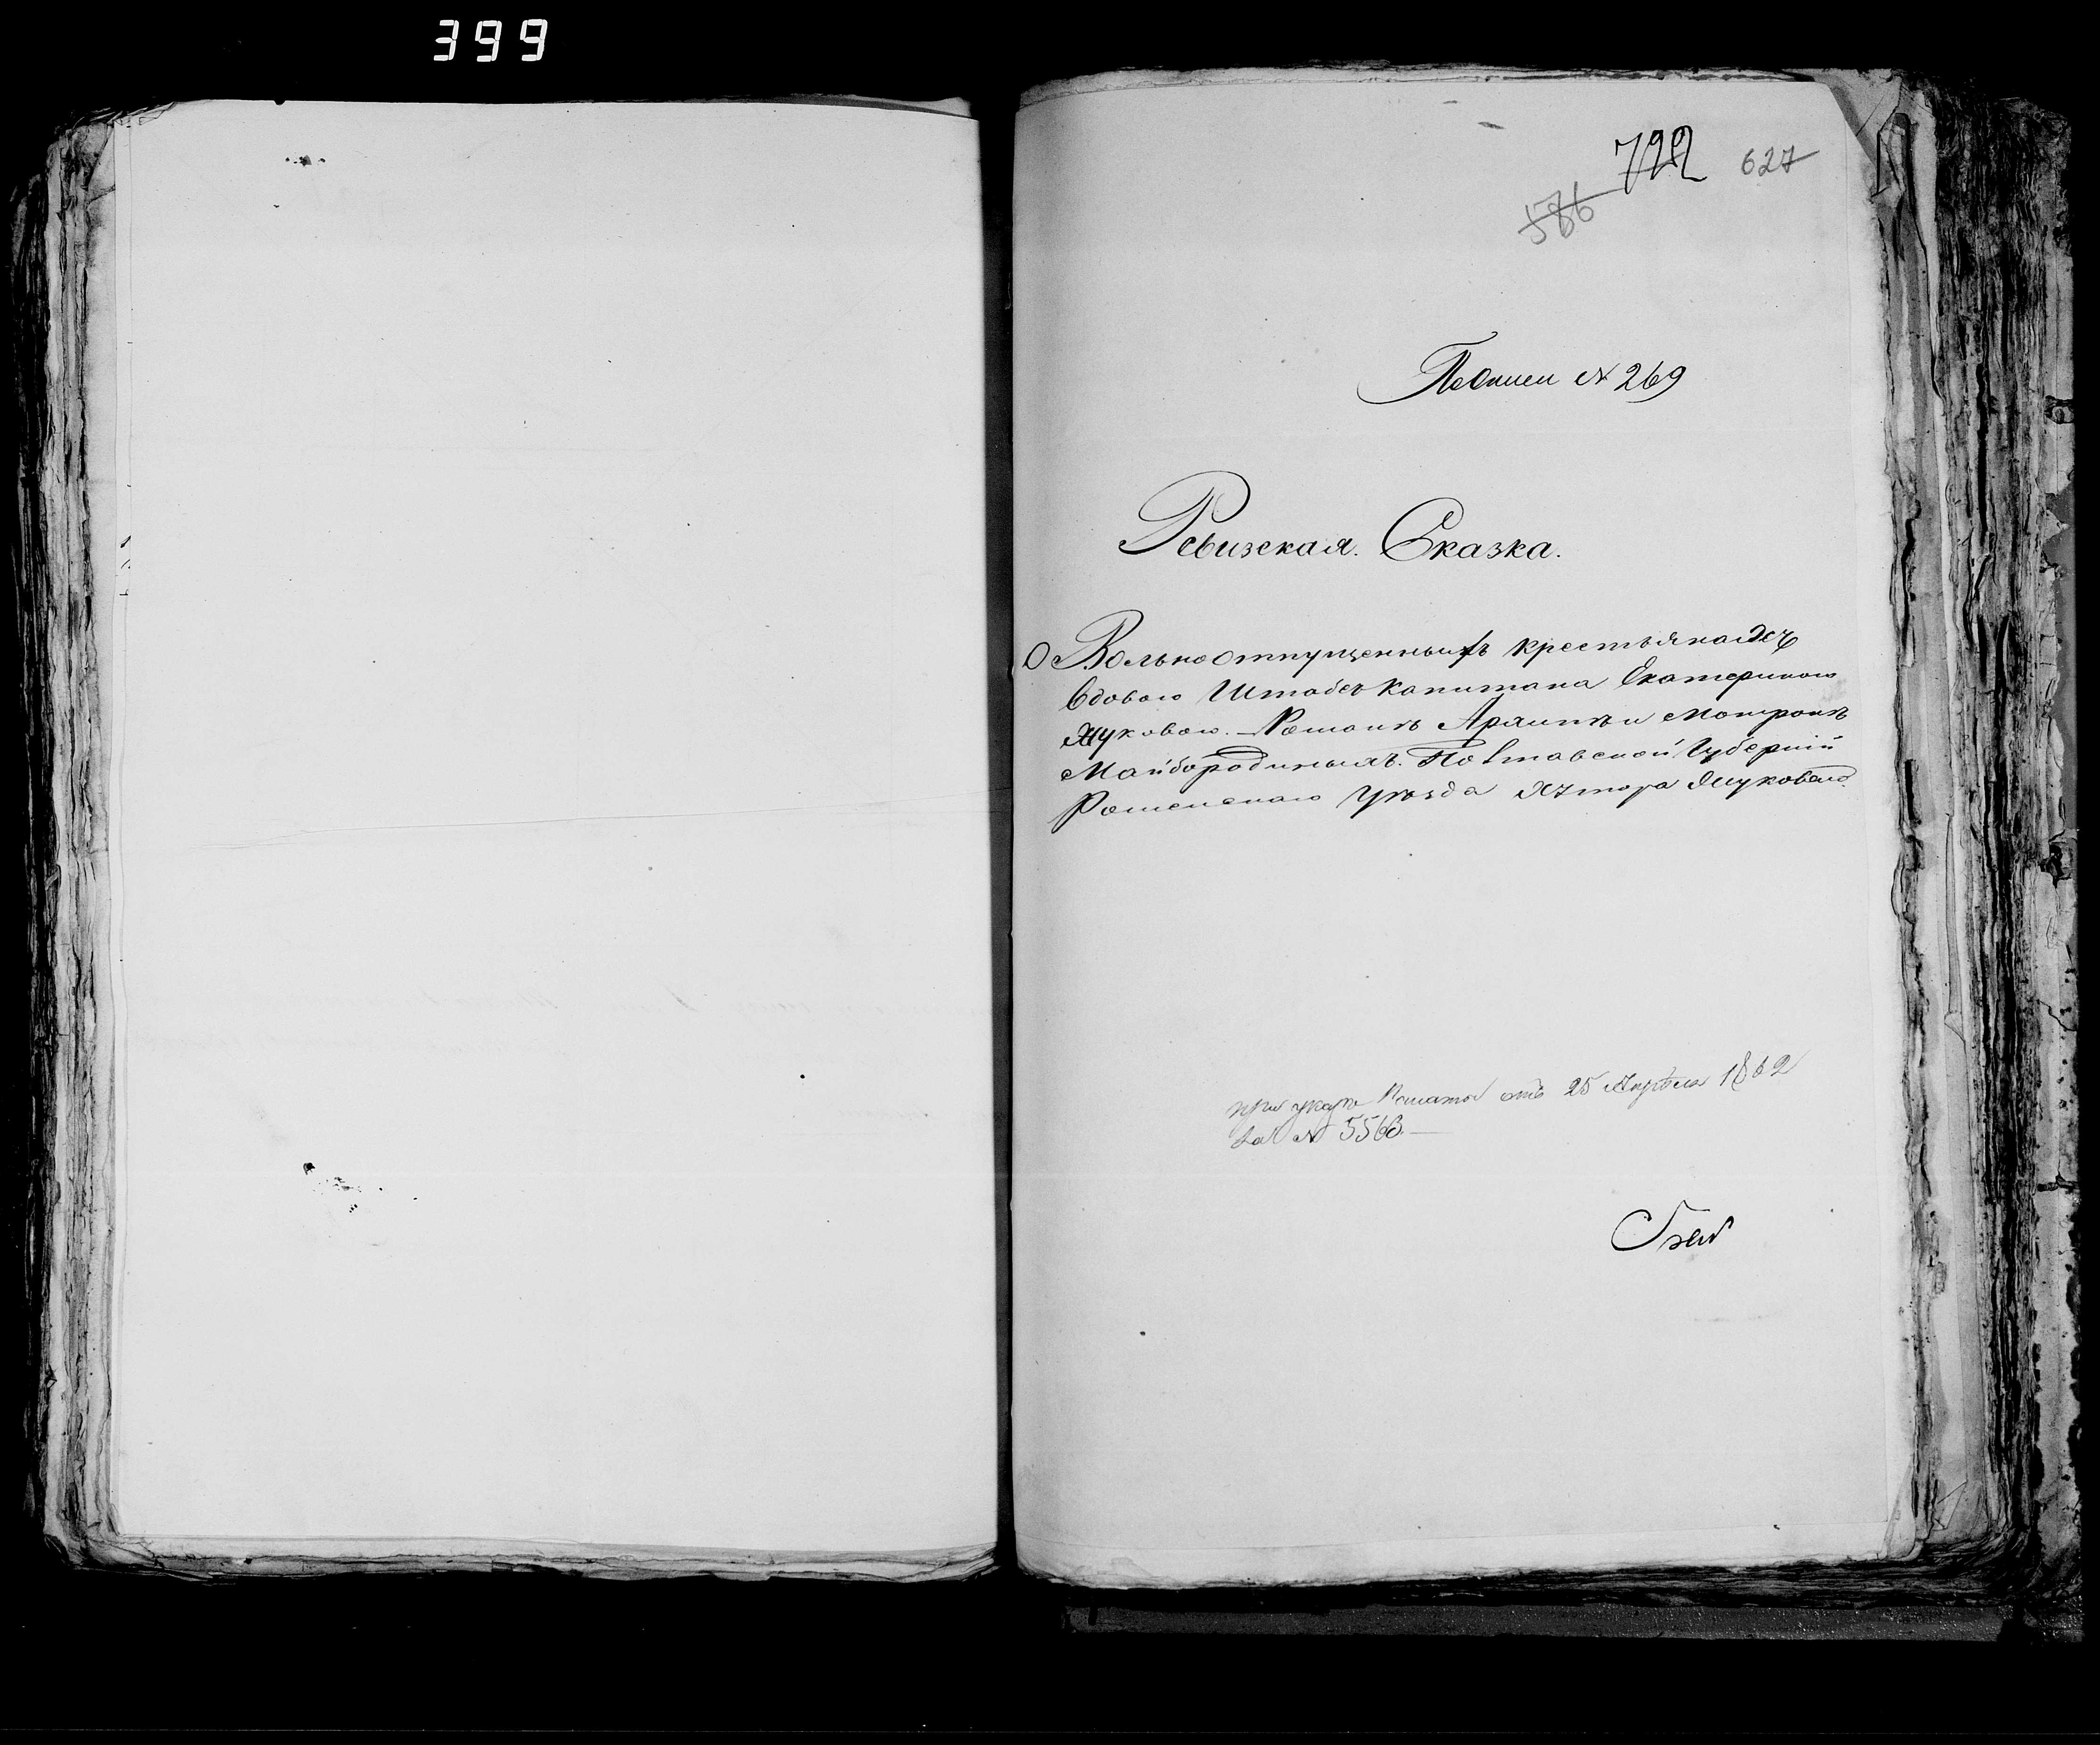 399
722 627
586
По Описи № 269
Ревизская. Сказка.
О Вольноотпущенныхъ крестьянахъ
вдовою Штабсъ Капитана Екатериною
Жуковою. Романъ и Мотронъ
Майбородиныхъ. Полтавской Губерніи
Роменскаго Уѣзда Хутора Жуковаго.
при указѣ Палаты отъ 25 Апрѣля 1862
за № 5563.